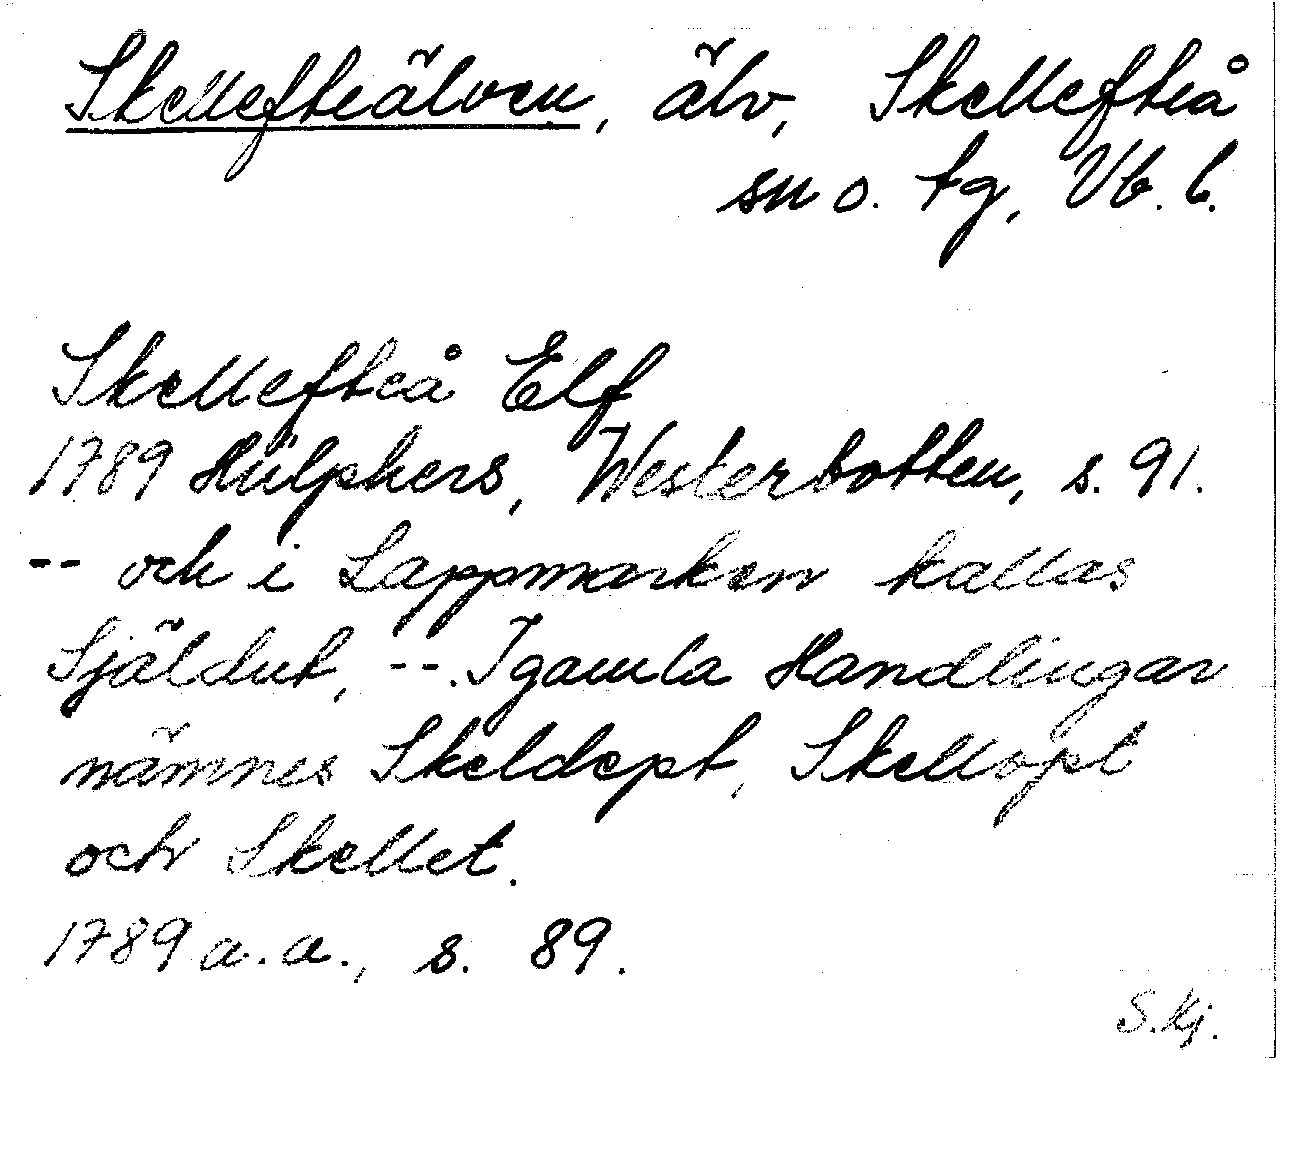 Skellefteälven, älv, Skellefteå
sn o. tg, Vb. l.
Skellefteå Elf
1789 Hülphers, Westerbotten, s. 91.
-- och i Lappmarken kallas
Själdut, --. I gamla Handlingar
nämnes Skeldept, Skellopt
och Skellet.
1789 a.a., s. 89.
S. Kj.